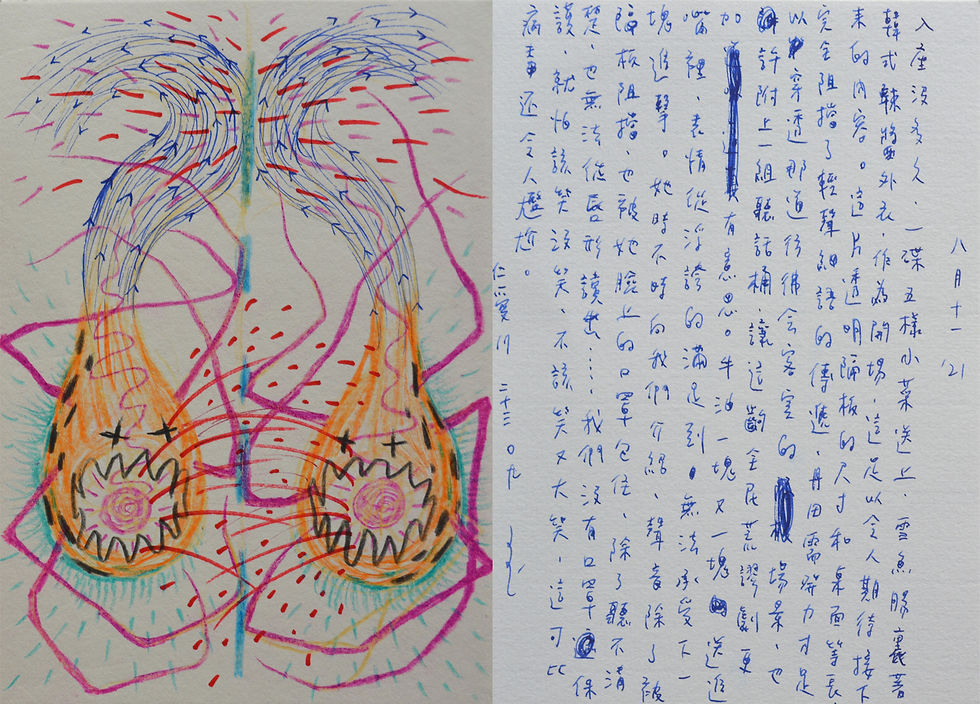 八月十一 '21
入座沒多久，一碟五樣小菜送上，雪魚腸裏著
韓式辣將外衣，作為開場，這足以令人期待接下
來的內容。這片透明隔板的尺寸和桌面等長
完全阻擋了輕聲細語的傳遞，丹田需蹦力才足
以穿透那道彷彿會客室的 場景，也
許附上一組聽話桶，讓這齣全民荒謬劇更
加 有意思。牛油一塊又一塊 送進
嘴裡，表情從浮誇的滿足到 無法承受下一
塊進擊。她時不時向我們介紹，聲音除了被
隔板阻擋，也被她臉上的口罩包住，除了聽不清
楚，也無法從唇形讀出……我們沒有口罩 保
護，就怕該笑沒笑，不該笑又大笑，這可比
病毒還令人尷尬。
二十三 〇九